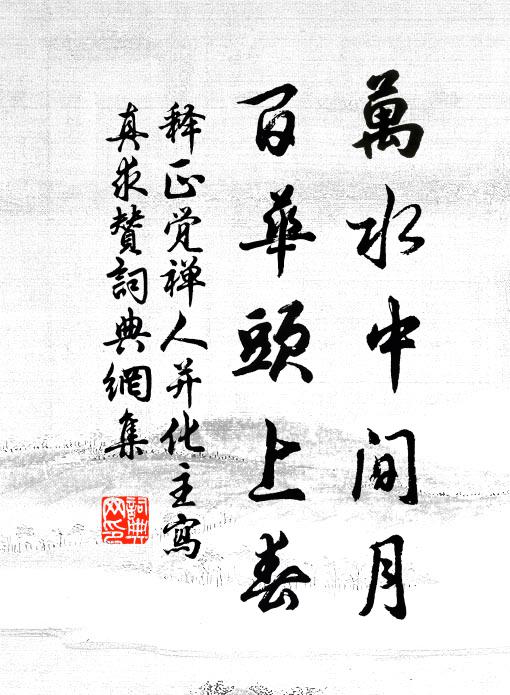 萬水中間月
百華頭上春
释正觉禅人并化主寫
真求賛詞典網集
詞典網印